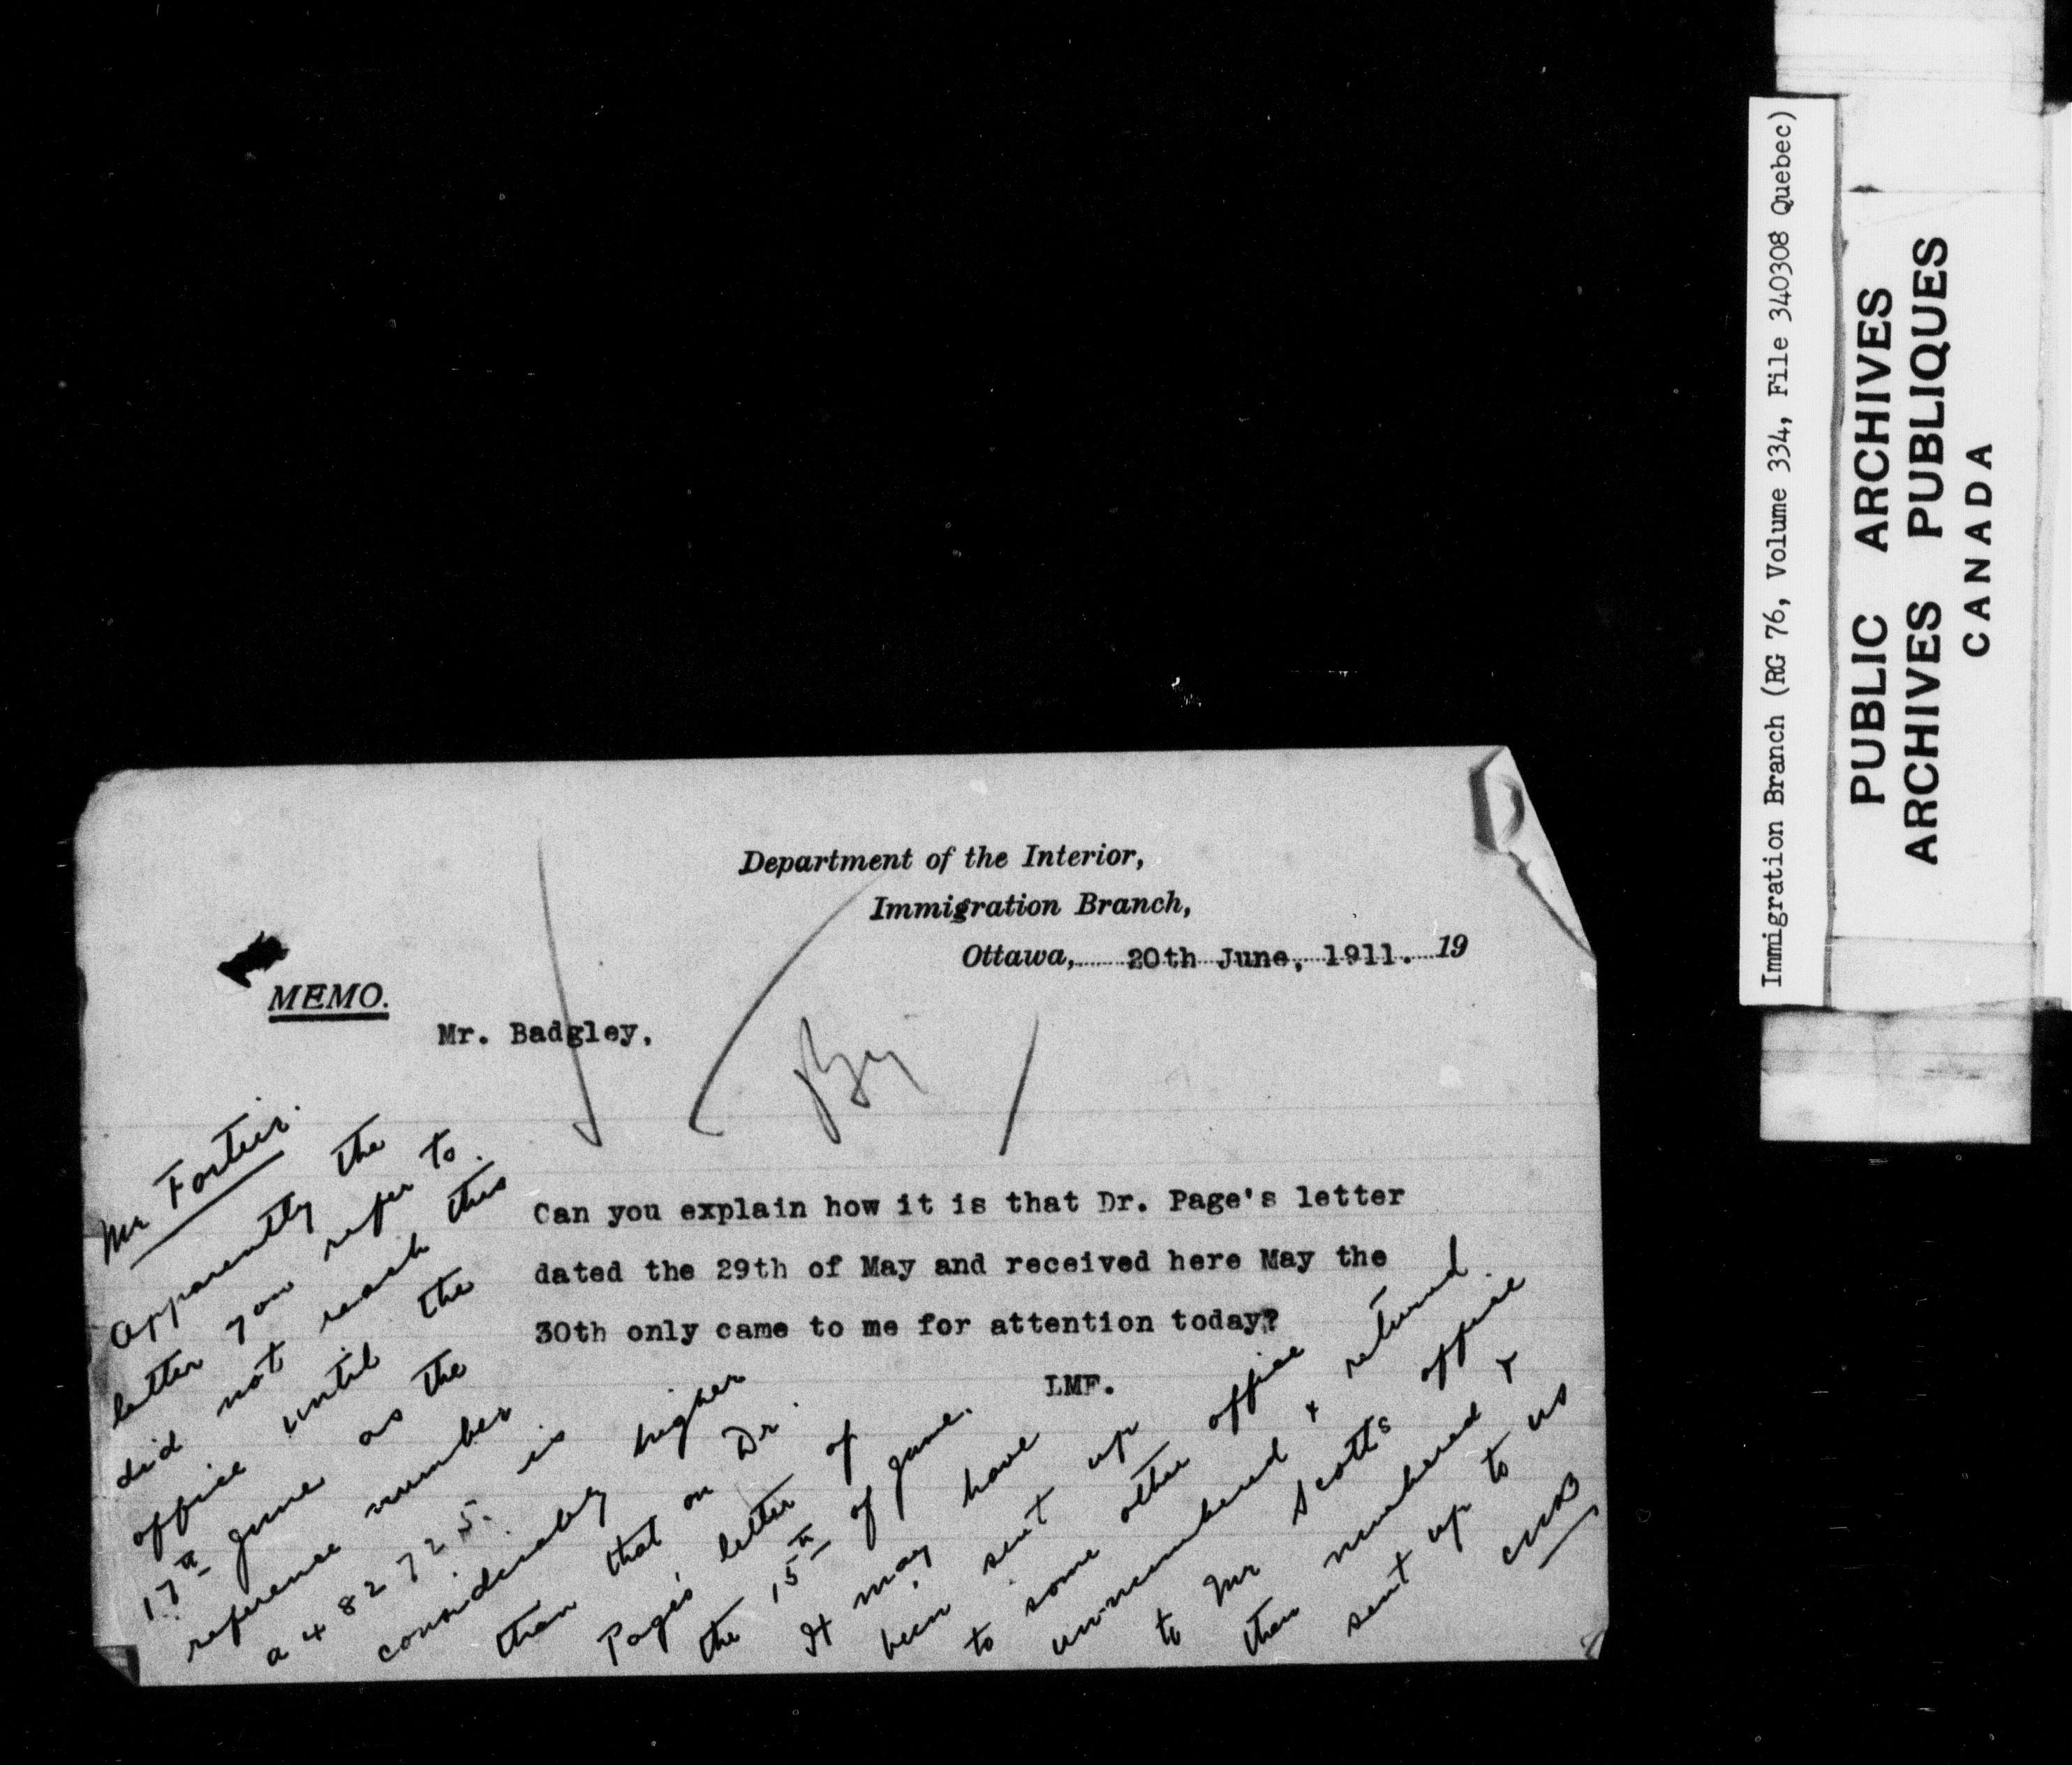 Department of the Interior,
Immigration Branch,
Ottawa, 20th June, 1911. 19
MEMO.
Mr. Badgley,
Can you explain how it is that Dr. Page's letter
dated the 29th of May and received here May the
30th only came to me for attention today?
LMF.
Mr Fortier.
Apparently the
letter you refer to.
did not reach this
office until the
17th June as the
reference number
a 482725. is
considerably higher
than that on Dr.
Page's letter of
the 15th of June.
It may have
been sent up
to some other office
unnumbered & returned.
to Mr Scotts office
then numbered &
sent up to us
Immigration Branch (RG 76, Volume 334, File 340308 Quebec)
PUBLIC ARCHIVES
ARCHIVES PUBLIQUES
CANADA